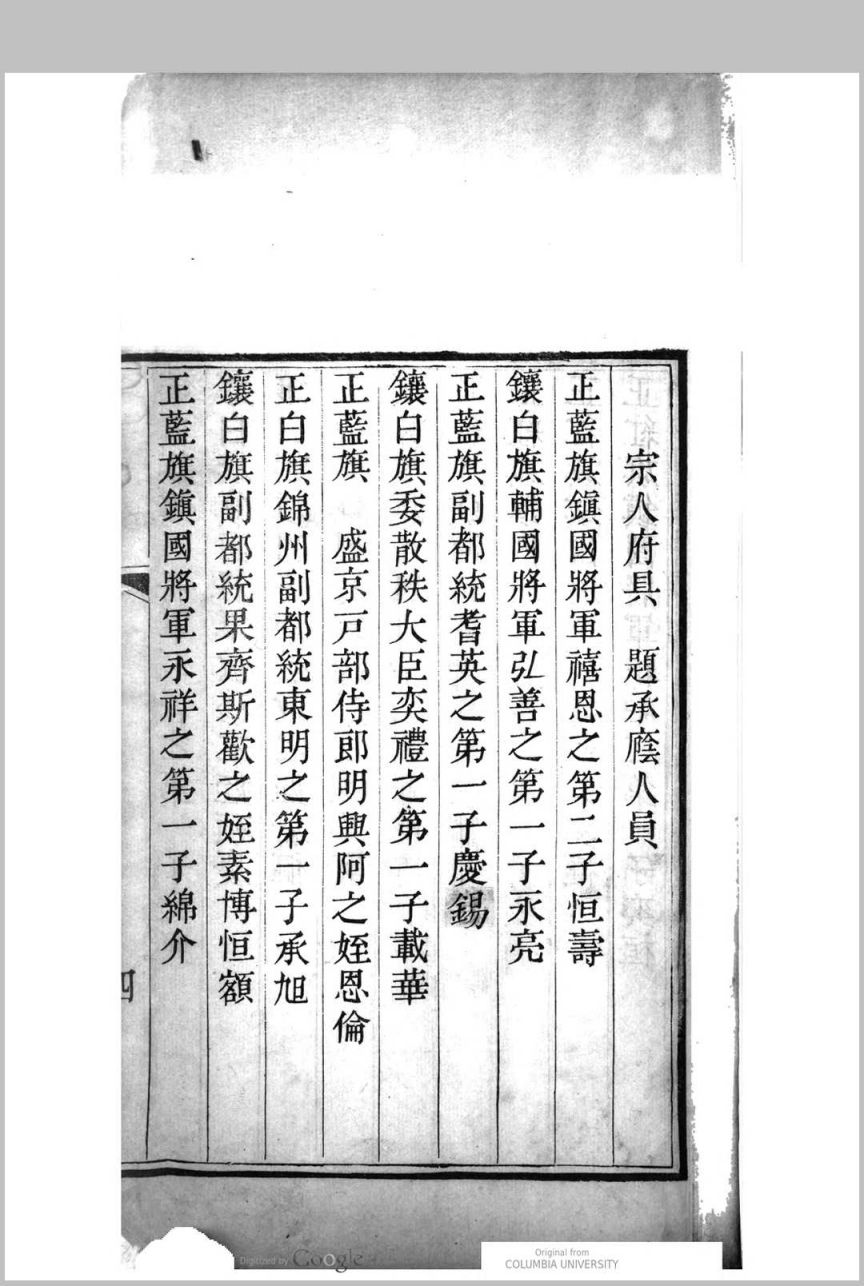 宗人府具　題承廕人員
正藍旗鎮國將軍禧恩之第二子恒壽
鑲白旗輔國將軍弘善之第一子永亮
正藍旗副都統耆英之第一子慶錫
鑲白旗委散秩大臣奕禮之第一子載華
正藍旗　盛京戸部侍郎明興阿之姪恩倫
正白旗錦州副都統東明之第一子承旭
鑲白旗副都統果齊斯歡之姪素博恒額
正藍旗鎮國將軍永祥之第一子綿介
四
Digitized by Google
Original from
COLUMBIA UNIVERSITY